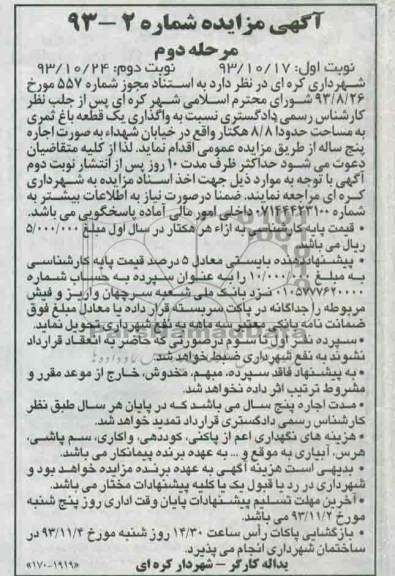 آگهی مزایده شماره ۲ – ۹۳
مرحله دوم
نوبت اول: ۹۳/۱۰/۱۷ نوبت دوم: ۹۳/۱۰/۲۴
شهرداری کره ای در نظر دارد به استناد مجوز شماره ۵۵۷ مورخ
۹۳/۸/۲۶ شورای محترم اسلامی شهر کره ای پس از جلب نظر
کارشناس رسمی دادگستری نسبت به واگذاری یک قطعه باغ ثمری
به مساحت حدودا ۸/۸ هکتار واقع در خیابان شهداء به صورت اجاره
پنج ساله از طریق مزایده عمومی اقدام نماید. لذا از کلیه متقاضیان
دعوت می شود حداکثر ظرف مدت ۱۰ روز پس از انتشار نوبت دوم
آگهی با توجه به موارد ذیل جهت اخذ اسناد مزایده به شهرداری
کره ای مراجعه نمایند. ضمنا درصورت نیاز به اطلاعات بیشتر به
شماره ۰۷۱۴۴۴۲۳۱۰۰ داخلی امور مالی آماده پاسخگویی می باشد.
• قیمت پایه کارشناسی به ازاء هر هکتار در سال اول مبلغ ۵/۰۰۰/۰۰۰
ریال می باشد.
• پیشنهاددهنده بایستی معادل ۵ درصد قیمت پایه کارشناسی
به مبلغ ۱۰/۰۰۰/۰۰۰ را به عنوان سپرده به حساب شماره
۰۱۰۵۷۷۷۶۲۰۰۰۰ نزد بانک ملی شعبه سرچهان واریز و فیش
مربوطه را جداگانه در پاکت سربسته قرار داده یا معادل مبلغ فوق
ضمانت نامه بانکی معتبر سه ماهه به نفع شهرداری تحویل نماید.
• سپرده نفر اول تا سوم درصورتی که حاضر به انعقاد قرارداد
نشوند به نفع شهرداری ضبط خواهد شد.
• به پیشنهاد فاقد سپرده، مبهم، مخدوش، خارج از موعد مقرر و
مشروط ترتیب اثر داده نخواهد شد.
• مدت اجاره پنج سال می باشد که در پایان هر سال طبق نظر
کارشناس رسمی دادگستری قرارداد تمدید خواهد شد.
• هزینه های نگهداری اعم از پاکنی، کوددهی، واکاری، سم پاشی،
هرس، آبیاری به موقع و ... به عهده برنده پیمانکار می باشد.
• بدیهی است هزینه آگهی به عهده برنده مزایده خواهد بود و
شهرداری در رد یا قبول یک یا کلیه پیشنهادات مختار می باشد.
• آخرین مهلت تسلیم پیشنهادات پایان وقت اداری روز پنج شنبه
مورخ ۹۳/۱۱/۲ می باشد.
• بازگشایی پاکات رأس ساعت ۱۴/۳۰ روز شنبه مورخ ۹۳/۱۱/۴ در
ساختمان شهرداری انجام می پذیرد.
یداله کارگر – شهردار کره ای «۱۷۰-۱۹۱۹»